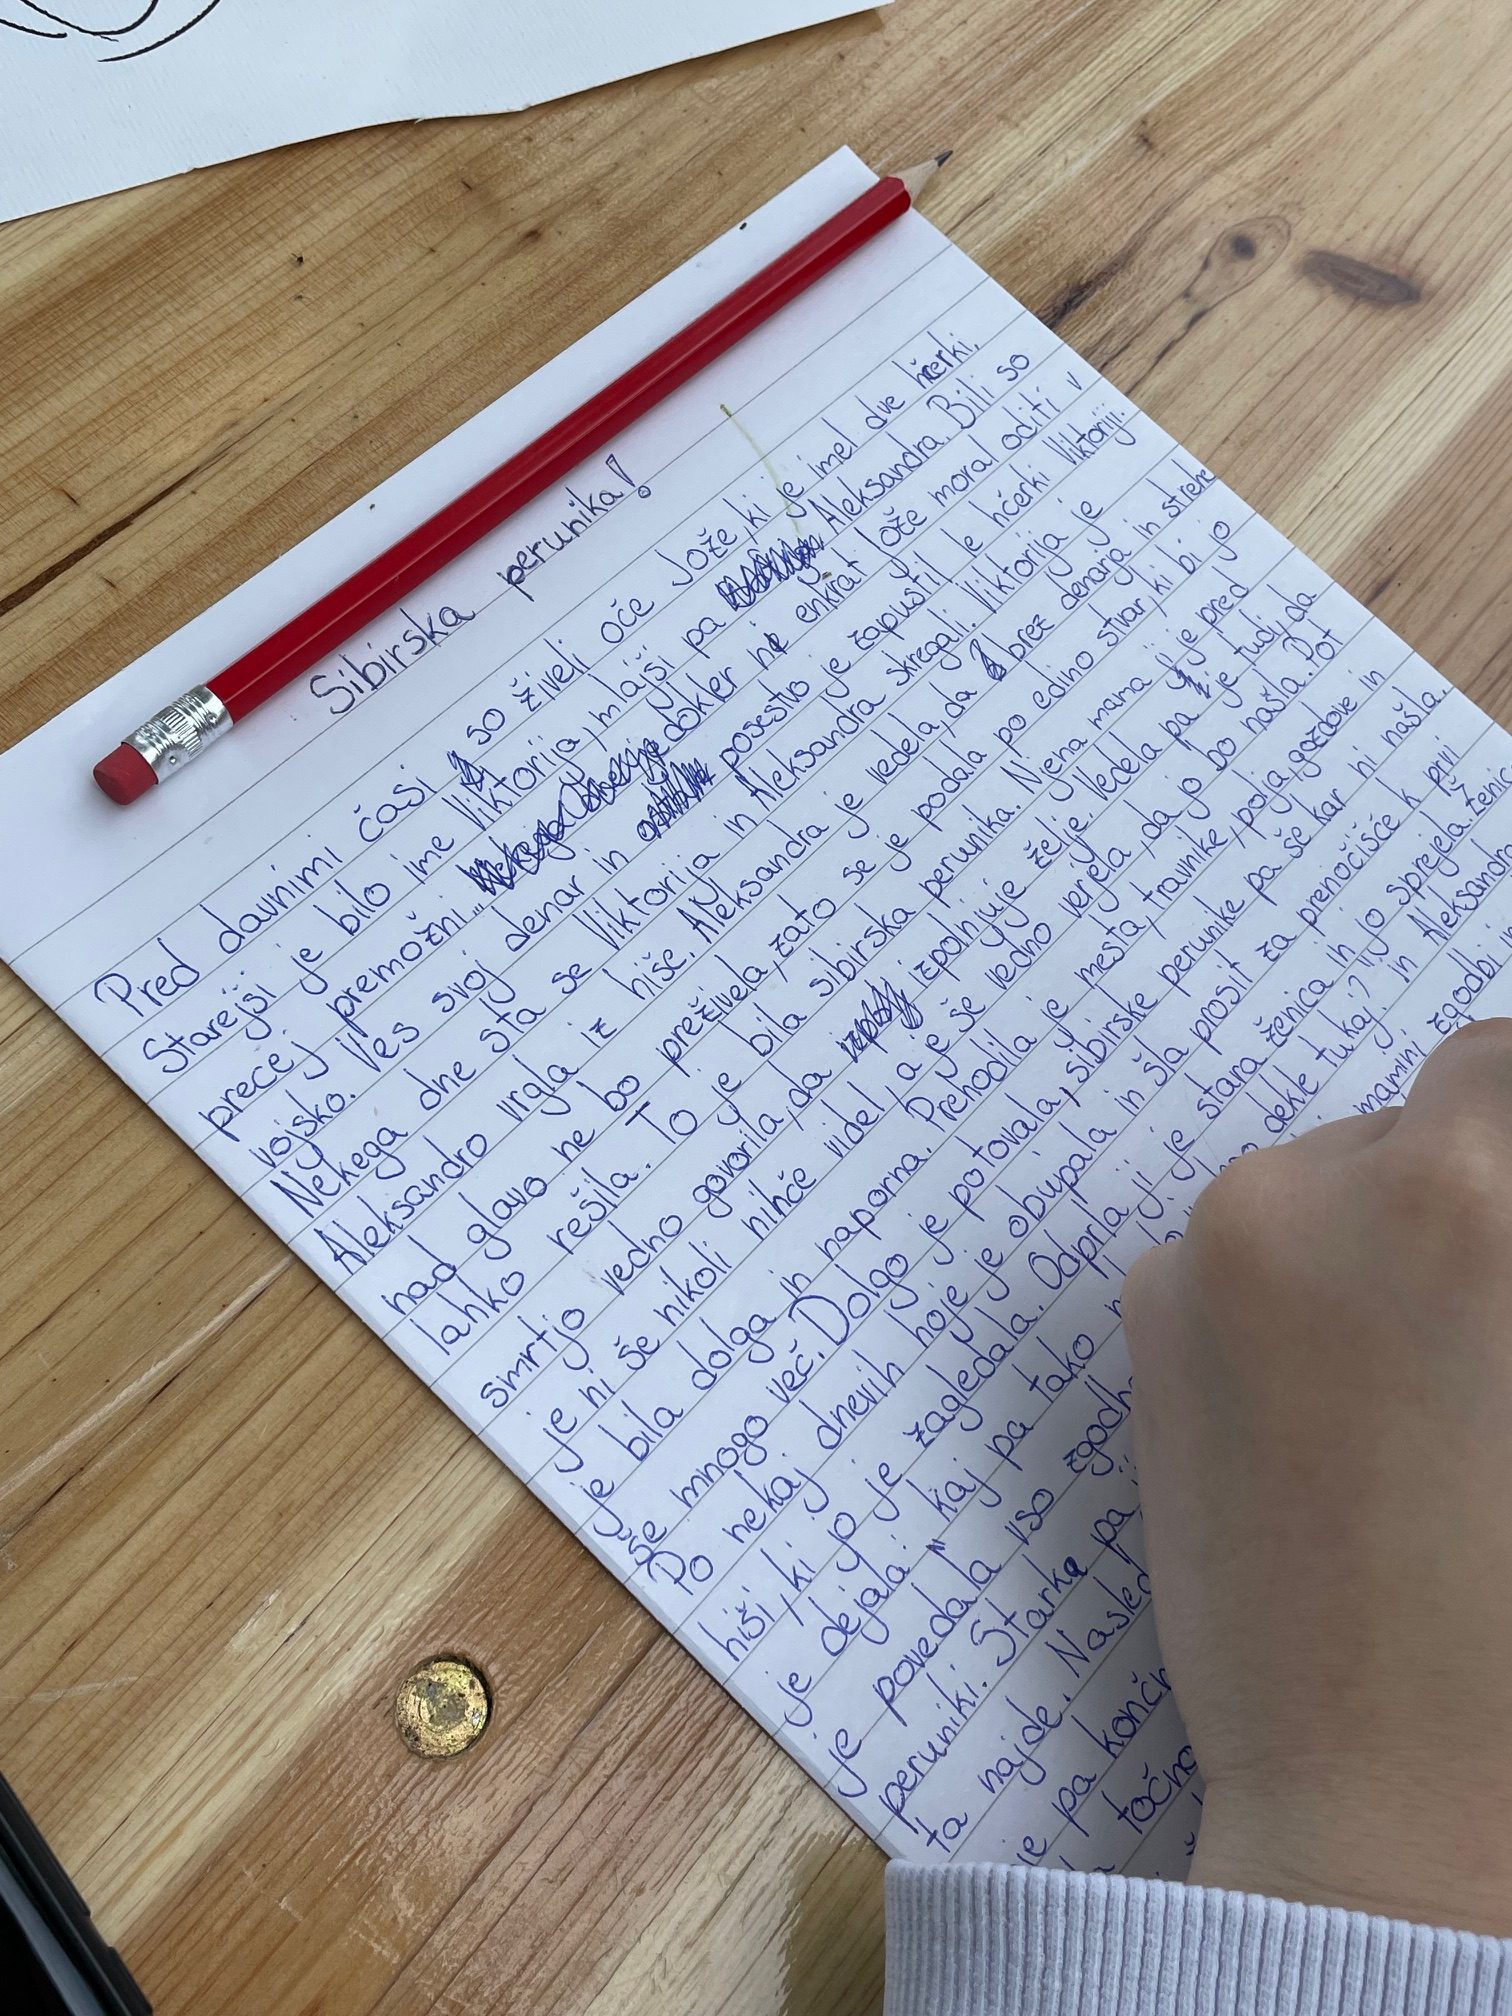 Sibirska perunika!
Pred davnimi časi so živeli oče Jože, ki je imel dve hčerki.
Starejši je bilo ime Viktorija, mlajši pa Aleksandra. Bili so
precej premožni dokler ni enkrat Jože moral oditi v
vojsko. Ves svoj denar in posestvo je zapustil le hčerki Viktoriji.
Nekega dne sta se Viktorija in Aleksandra skregali. Viktorija je
Aleksandro vrgla iz hiše. Aleksandra je vedela, da brez denarja in strehe
nad glavo ne bo preživela, zato se je podala po edino stvar, ki bi jo
lahko rešila. To je bila sibirska perunika. Njena mama ji je pred
smrtjo vedno govorila, da izpolnjuje želje. Vedela pa je tudi, da
je ni še nikoli nihče videl, a je še vedno verjela, da jo bo našla. Pot
je bila dolga in naporna. Prehodila je mesta, travnike, polja, gozdove in
še mnogo več. Dolgo je potovala, sibirske perunike pa še kar ni našla.
Po nekaj dnevih hoje je obupala in šla prosit za prenočišče k prvi
hiši, ki jo je zagledala. Odprla ji je stara ženica in jo sprejela. Ženica
je dejala: " kaj pa tako dekle tukaj?" in Aleksandra
je povedala vso mamini zgodbi
peruniki. Starka pa
ta najde.
je pa
točno